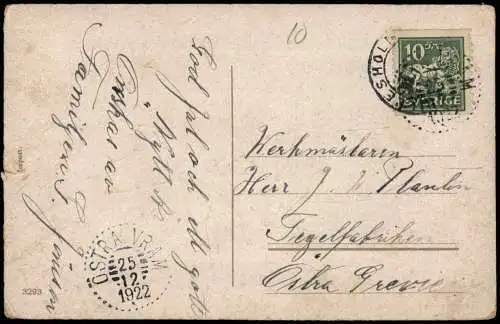 God Jul och ett gott
"Nytt År"
Önskas av
Familjen
10
10 ÖRE
SVERIGE
Werkmästaren
Herr J. Plantin
Tegelfabriken
Östra Grevie
ÖSTRA VRAM
25
12
1922
3293